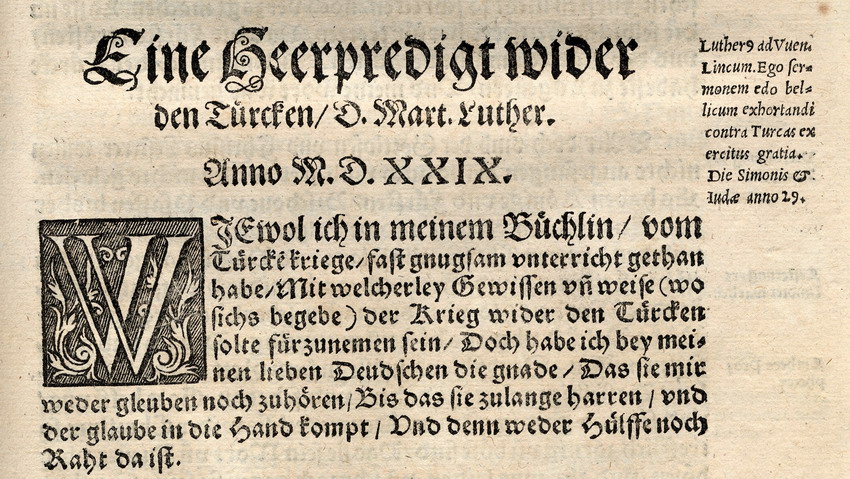 Eine Heerpredigt wider
den Türcken/ D. Mart. Luther.
Anno M. D. XXIX.
WJEwol ich in meinem Büchlin/ vom
Türckē kriege/ fast gnugsam vnterricht gethan
habe/ Mit welcherley Gewissen vñ weise (wo
sichs begebe) der Krieg wider den Türcken
solte fürzunemen sein/ Doch habe ich bey mei-
nen lieben Deudschen die gnade/ Das sie mir
weder gleuben noch zuhören/ Bis das sie zulange harren/ vnd
der glaube in die Hand kompt/ Vnd denn weder Hülffe noch
Raht da ist.
Lutherꝰ ad Vuen.
Lincum. Ego ser-
monem edo bel-
licum exhortandi
contra Turcas ex
ercitus gratia.
Die Simonis &
Iudæ anno 29.